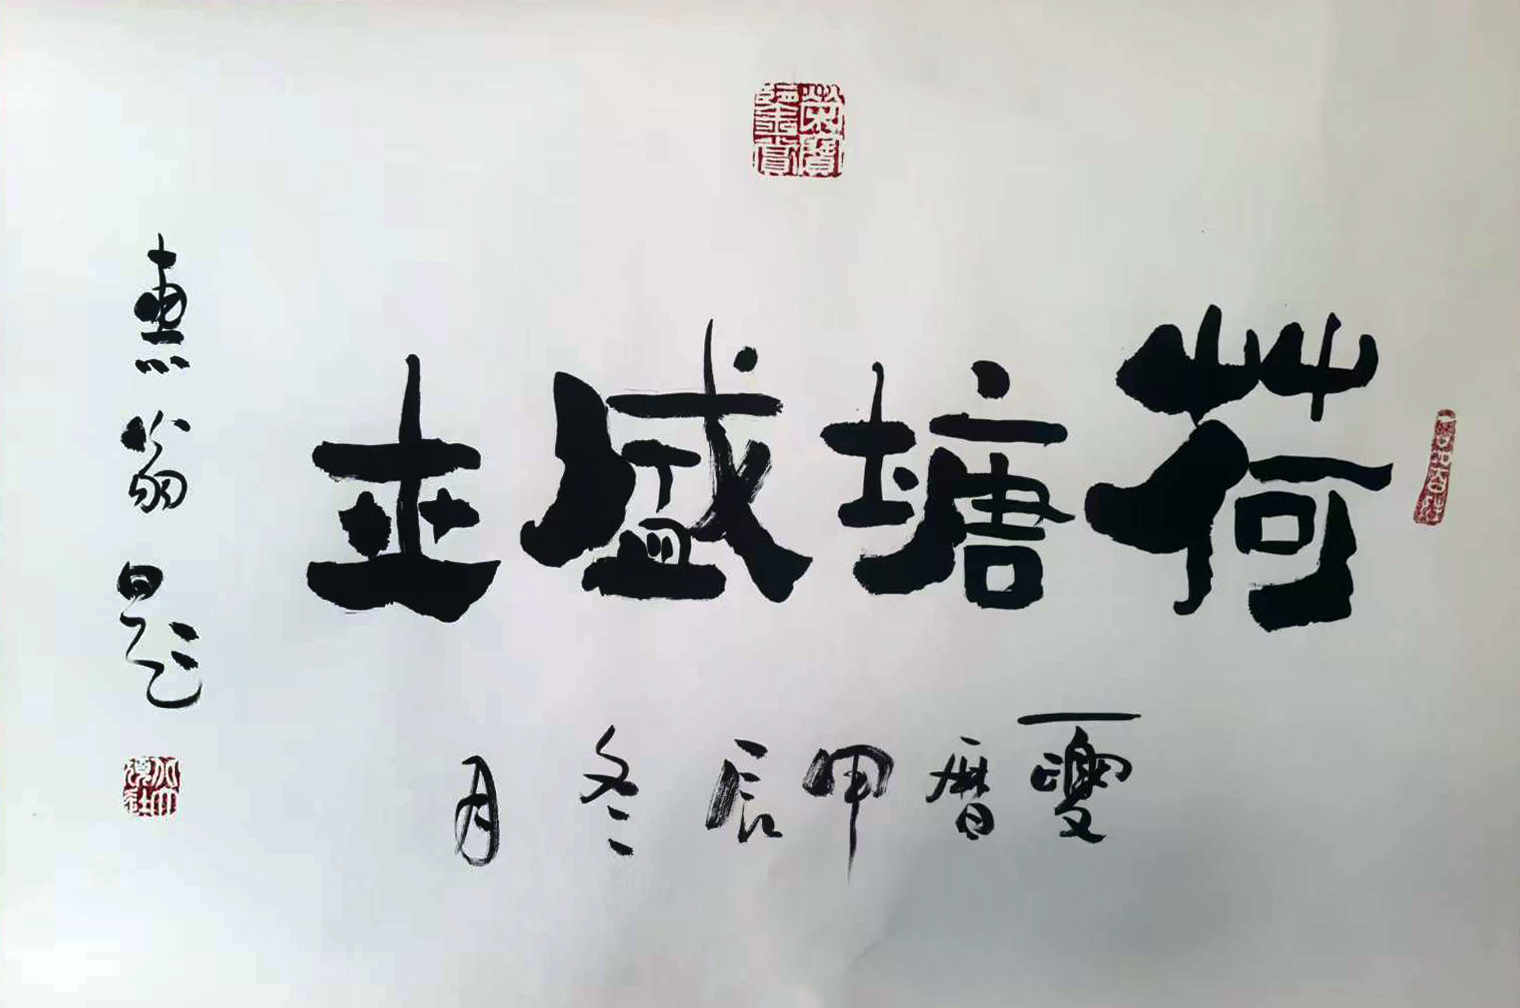 荷塘盛世
夏暦甲辰冬月
惠翁題